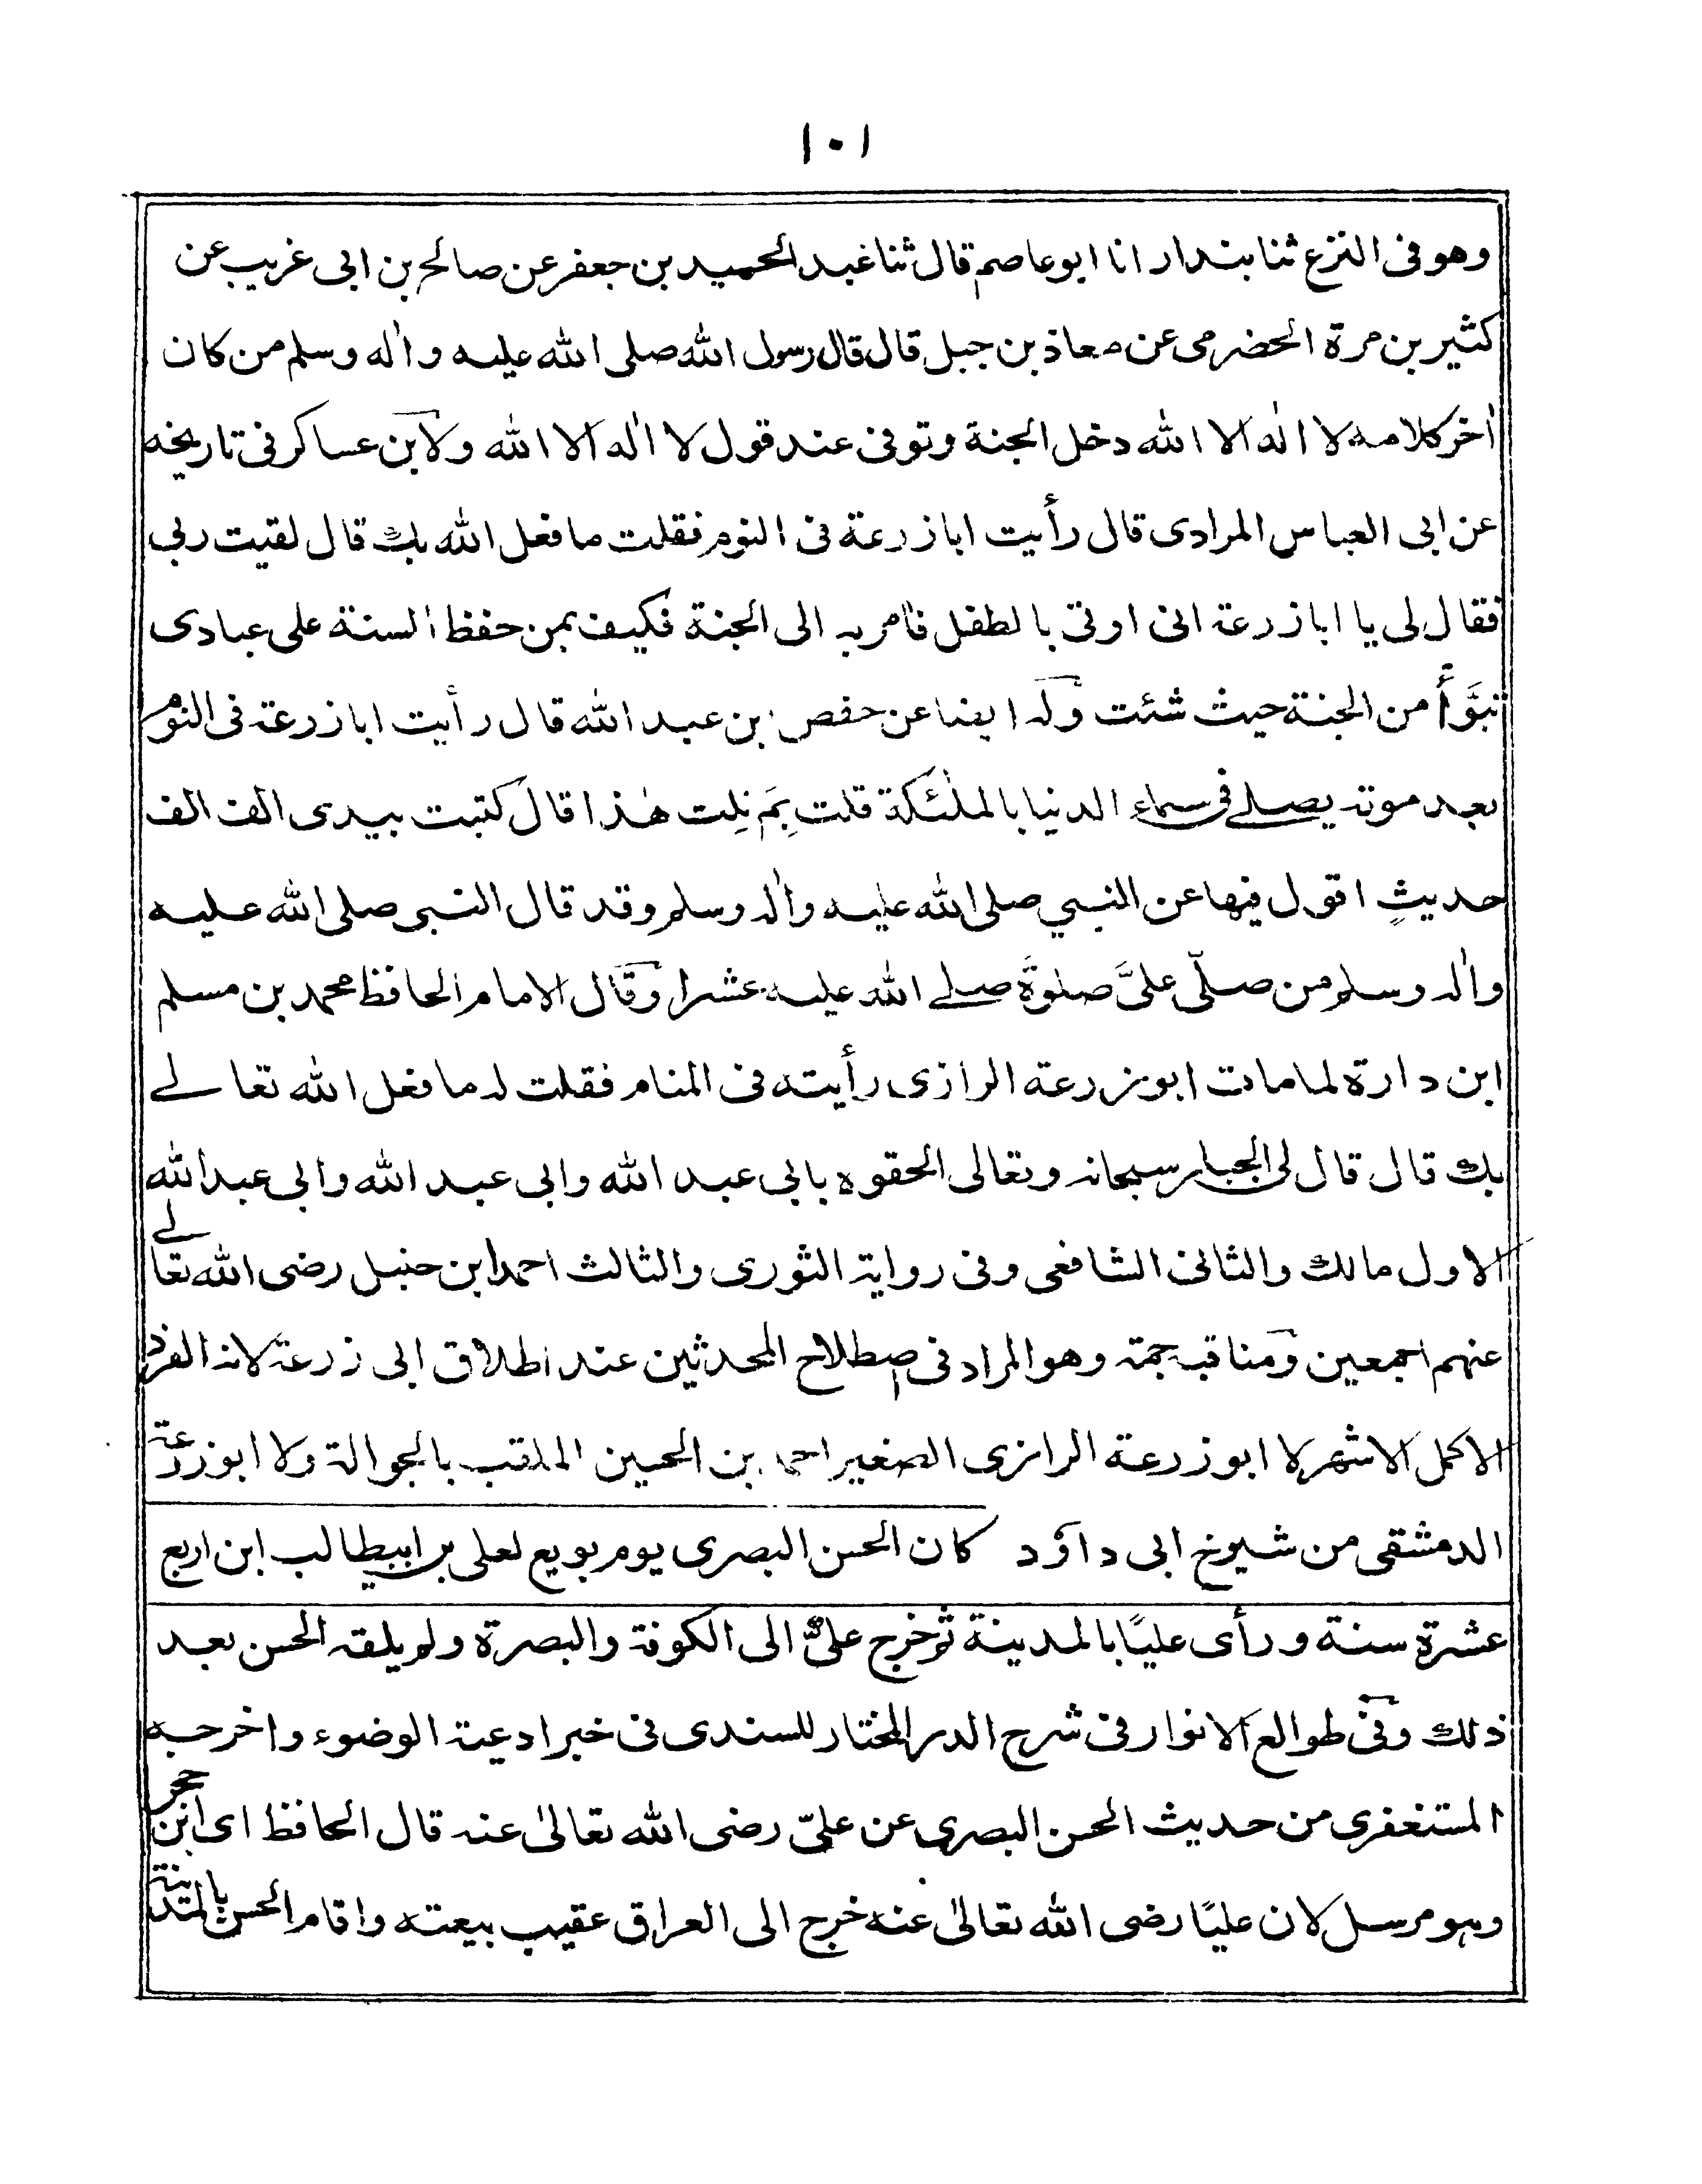 ١٠١
وهو فى النزع ثنا بندار انا ابو عاصم قال ثنا عبد الحميد بن جعفر عن صالح بن ابى غريب عن
كثير بن مرة الحضرمى عن معاذ بن جبل قال قال رسول الله صلى الله عليه واٰله وسلم من كان
اٰخر كلامه لا اله الا الله دخل الجنة وتوفى عند قول لا اله الا الله ولابن عساكر فى تاريخه
عن ابى العباس المرادى قال رأيت ابا زرعة فى النوم فقلت ما فعل الله بك قال لقيت ربى
فقال لى يا ابا زرعة انى اوتى بالطفل فاٰمر به الى الجنة فكيف بمن حفظ السنة على عبادى
تبوَّأْ من الجنة حيث شئت وله ايضا عن حفص بن عبد الله قال رأيت ابا زرعة فى النوم
بعد موته يصلے فى سماء الدنيا بالملٰئكة قلت بِمَ نِلت هٰذا قال كتبت بيدى الف الف
حديثٍ اقول فيها عن النبي صلى الله عليه واٰله وسلم وقد قال النبى صلى الله عليه
واٰله وسلم من صلّى علىَّ صلوٰةً صلے الله عليه عشرا وقال الامام الحافظ محمد بن مسلم
ابن دارة لما مات ابو زرعة الرازى رأيته فى المنام فقلت له ما فعل الله تعالے
بك قال قال لى الجبار سبحانه وتعالى الحقوه بابى عبد الله وابى عبد الله وابى عبد الله
الاول مالك والثانى الشافعى وفى رواية الثورى والثالث احمد ابن حنبل رضى الله تعالے
عنهم اجمعين ومناقبه جمة وهو المراد فى اصطلاح المحدثين عند اطلاق ابى زرعة لانه الفرد
الاكمل الاشهر لا ابو زرعة الرازى الصغير احمد بن الحسين الملقب بالجوالة ولا ابو زرعة
الدمشقى من شيوخ ابى داؤد كان الحسن البصرى يوم بويع لعلى بن ابيطالب ابن اربع
عشرة سنة ورأى عليًا بالمدينة ثم خرج علىٌّ الى الكوفة والبصرة ولم يلقه الحسن بعد
ذلك وفى طوالع الانوار فى شرح الدر المختار للسندى فى خبر ادعية الوضوء واخرجه
المستغفرى من حديث الحسن البصرى عن علىّ رضى الله تعالىٰ عنه قال الحافظ اى ابن حجر
وهو مرسل لان عليًا رضى الله تعالىٰ عنه خرج الى العراق عقيب بيعته واقام الحسن بالمدينة